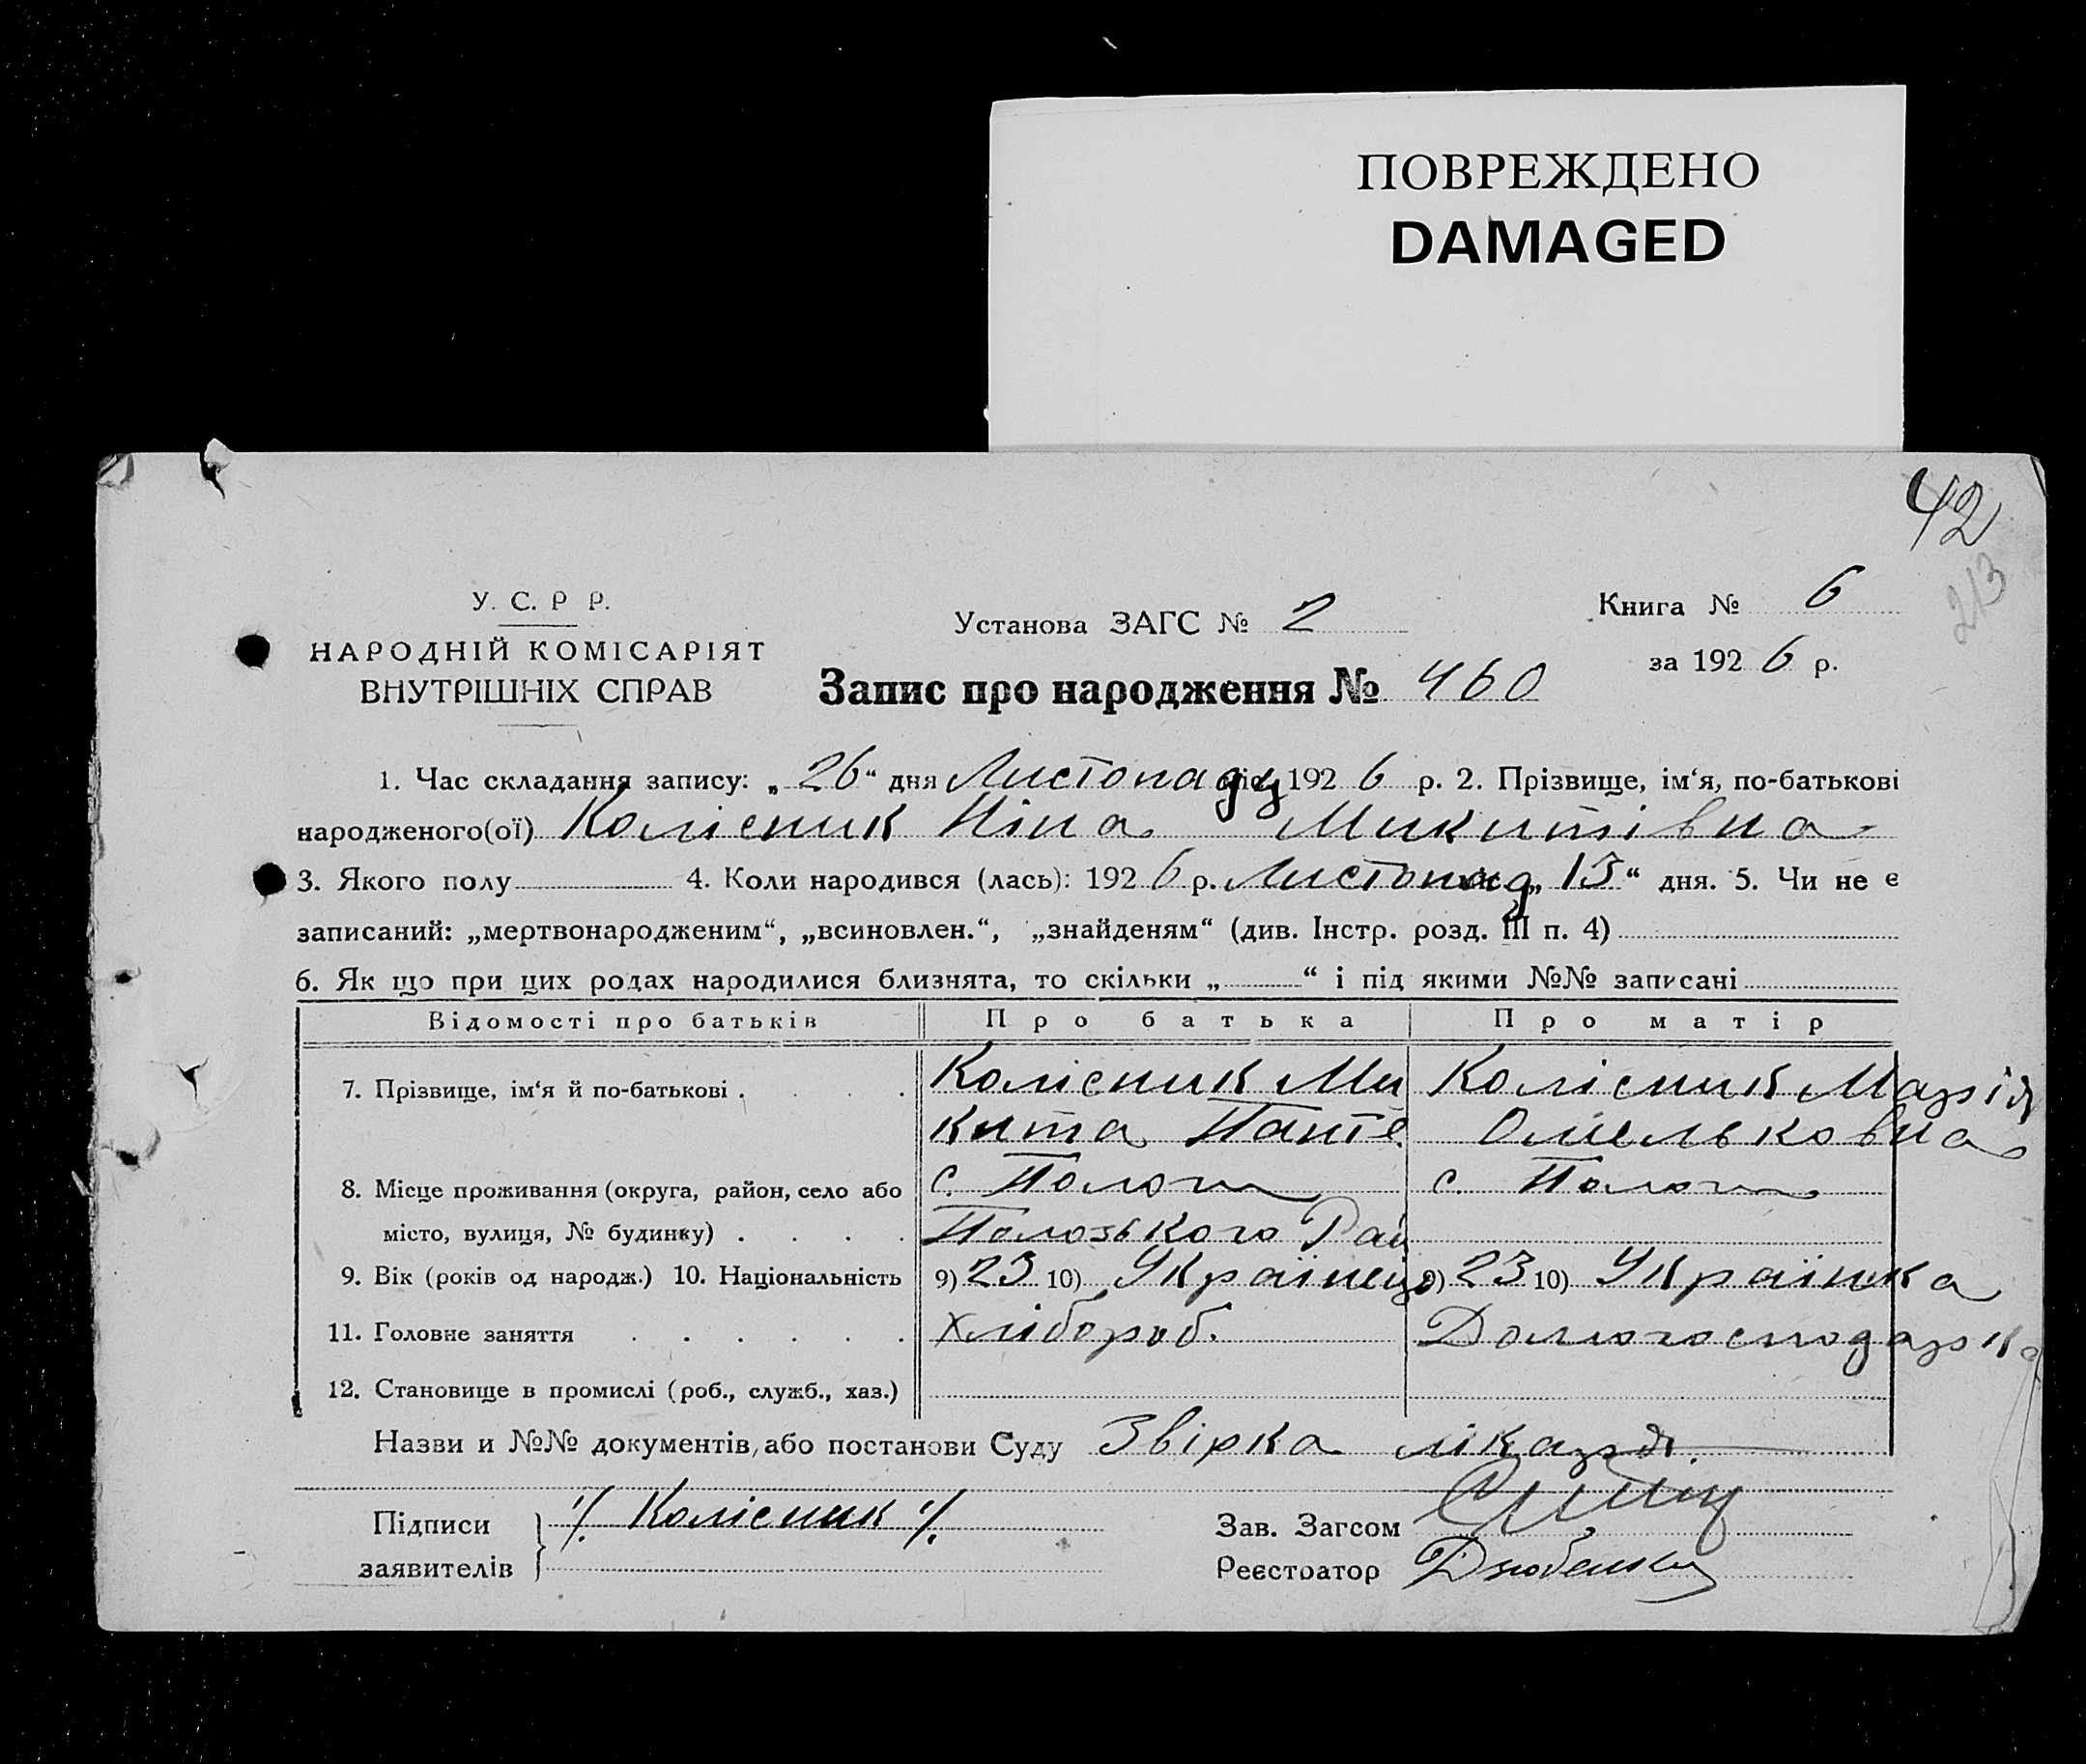 ПОВРЕЖДЕНО
DAMAGED
42
213
У. С. Р Р.
НАРОДНІЙ КОМІСАРІЯТ
ВНУТРІШНІХ СПРАВ
Установа ЗАГС № 2
Книга № 6
за 1926 р.
Запис про народження № 460
1. Час складання запису: „26“ дня Листопаду 1926 р. 2. Прізвище, ім‘я, по-батькові
народженого(ої) Колісник Ніна Микитівна
3. Якого полу 4. Коли народився (лась): 1926 р. Листопад „13“ дня. 5. Чи не є
записаний: „мертвонародженим“, „всиновлен.“, „знайденям“ (див. Інстр. розд. III п. 4)
6. Як що при цих родах народилися близнята, то скільки „ “ і під якими №№ записані
Відомості про батьків Про батька Про матір
7. Прізвище, ім‘я й по-батькові . . . . Колісник Ми Колісник Марія
кита Панте. Омельковна
8. Місце проживання (округа, район, село або с. Пологи с. Пологи
місто, вулиця, № будинку) . . . . Полозького Рай
9. Вік (років од народж.) 10. Національність 9) 23 10) Українець 9) 23 10) Українка
11. Головне заняття . . . . . . Хлібороб. Домогосподарка
12. Становище в промислі (роб., служб., хаз.)
Назви и №№ документів, або постанови Суду Звірка лікаря.
Підписи
заявителів
/. Колісник /.
Зав. Загсом
Реєстратор